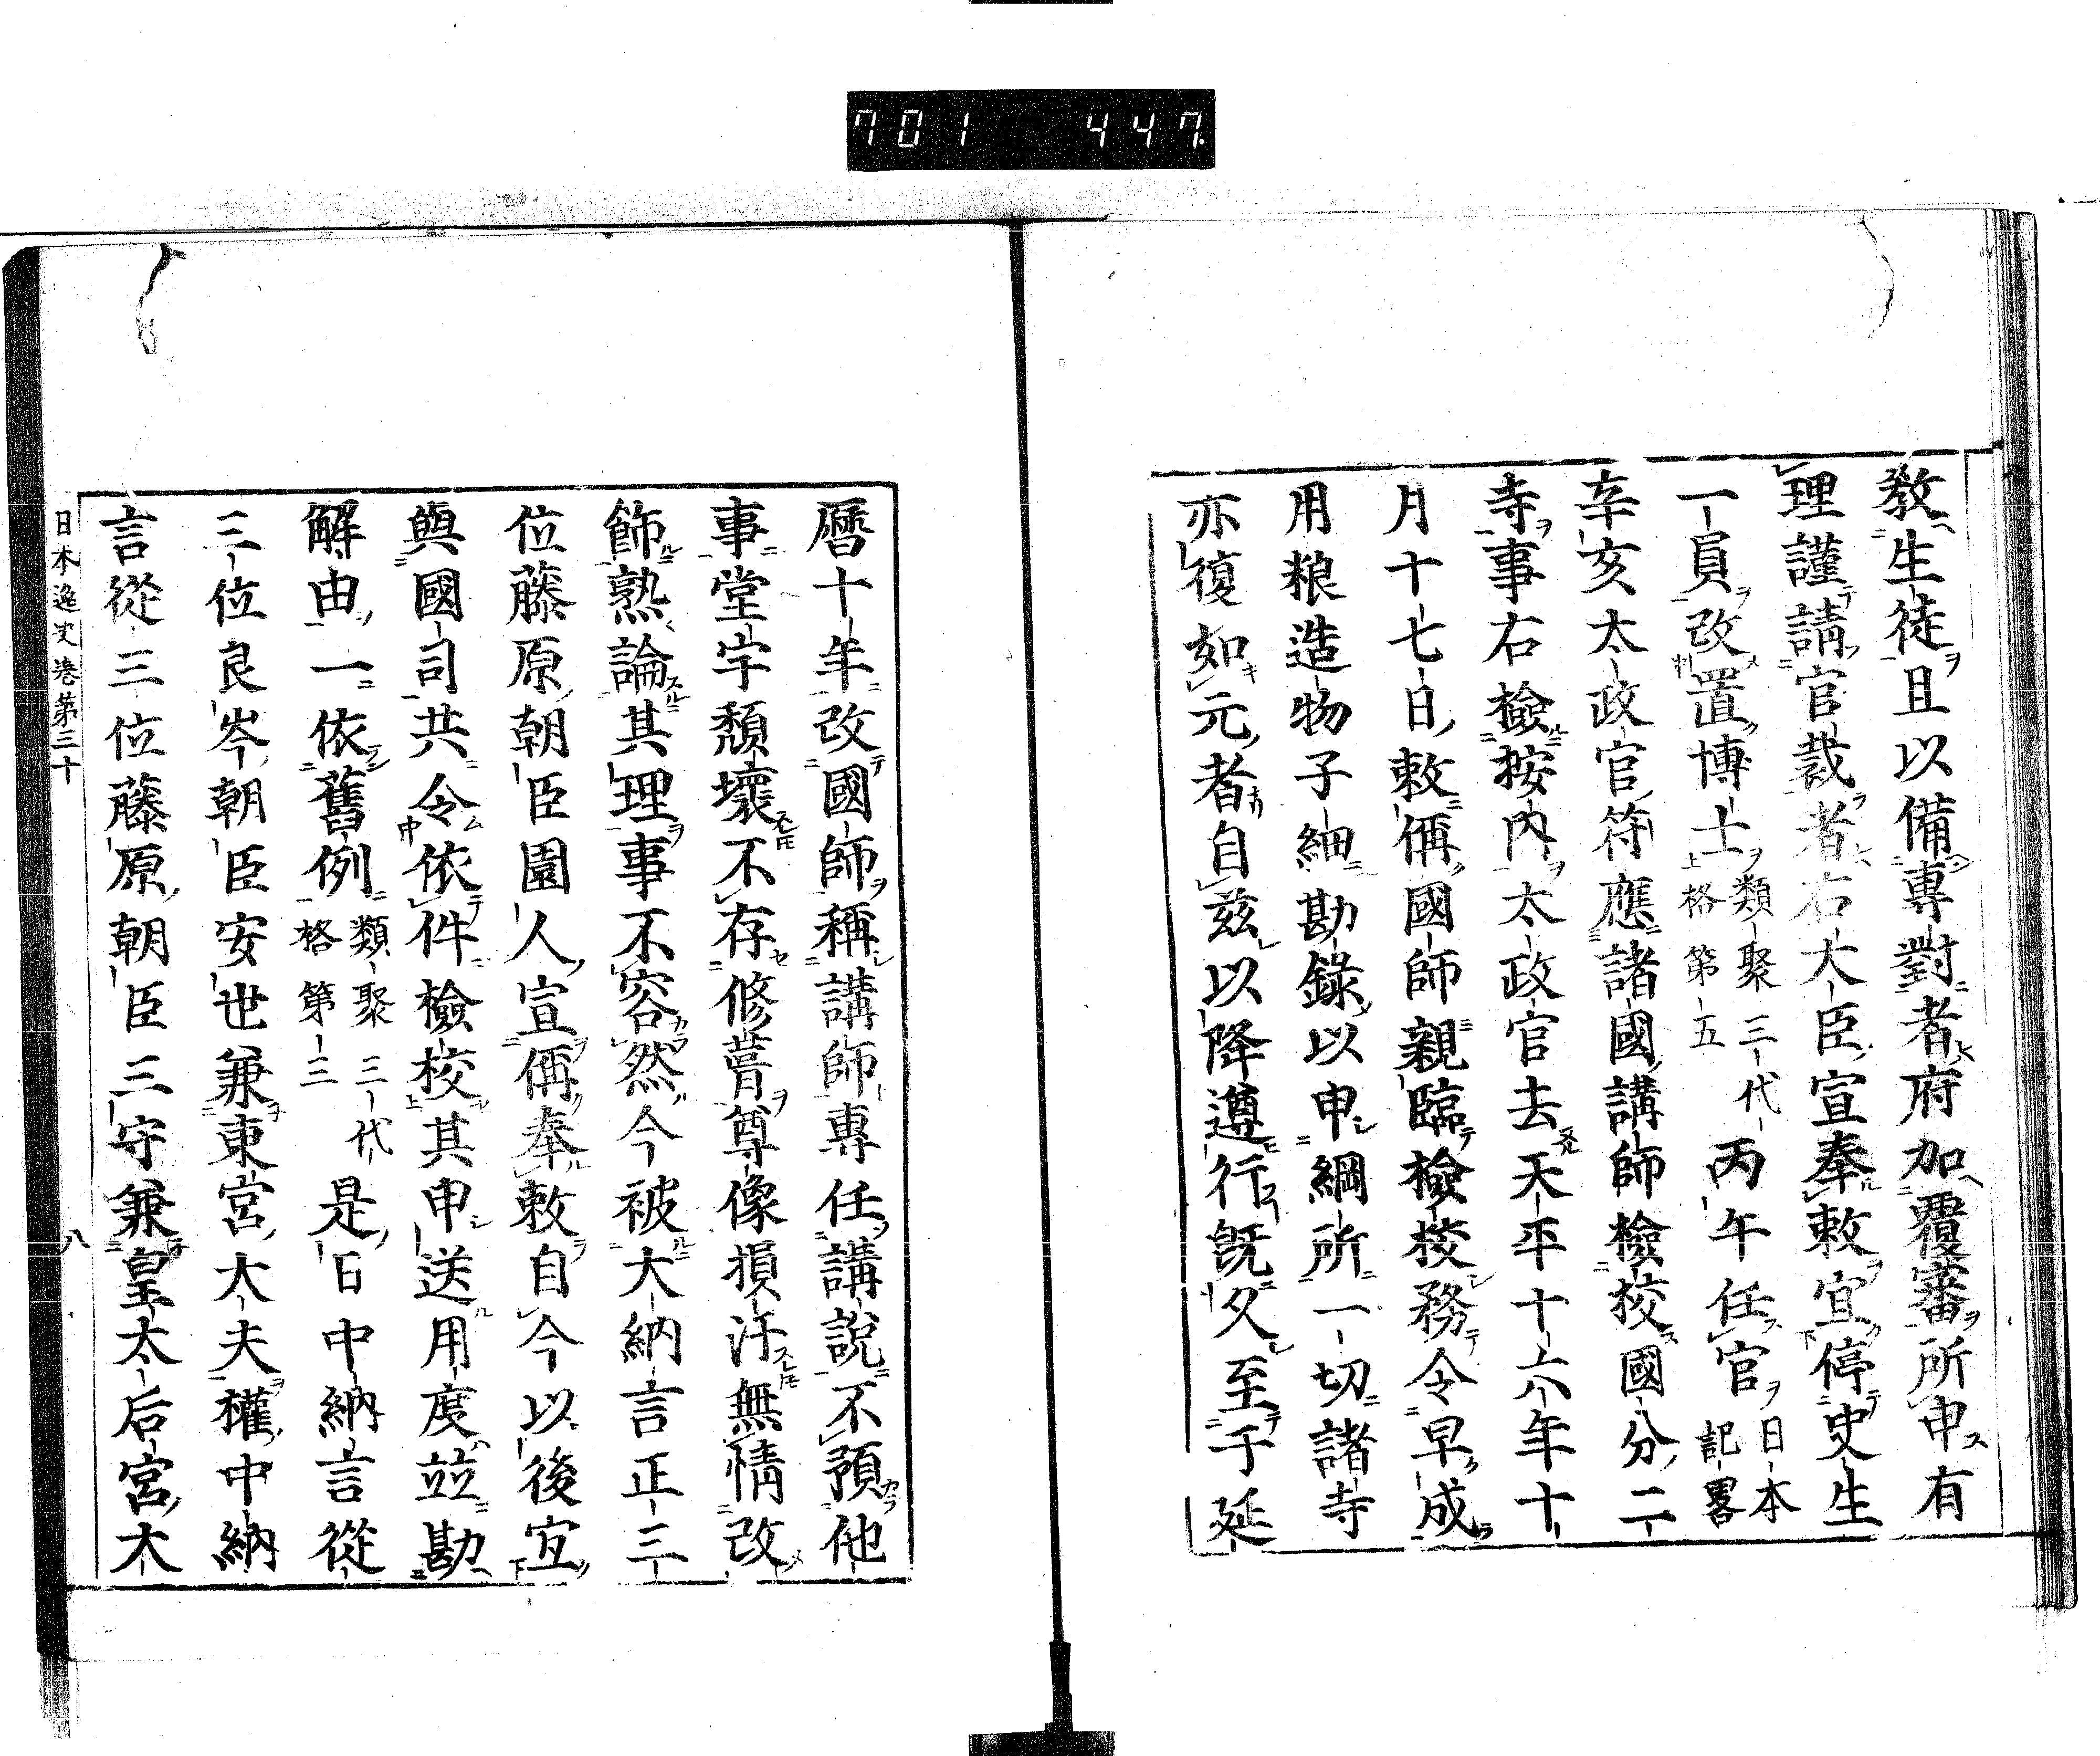 701 447.
教生徒且以備專對者府加覆審所申有
理謹請官裁者右大臣宣奉敕宜停史生
一員改置博士類聚三代格第五丙午任官日本記畧
辛亥太政官符應諸國講師檢挍國分二
寺事右檢按內太政官去天平十六年十
月十七日敕偁國師親臨檢挍務令早成
用粮造物子細勘錄以申綱所一切諸寺
亦復如元者自茲以降遵行既久至于延
曆十年改國師稱講師專任講說不預他
事堂宇頽壞不存修葺尊像損汙無情改
飾熟論其理事不容然今被大納言正三
位藤原朝臣園人宣偁奉敕自今以後宜
與國司共令依件檢校其申送用度竝勘
解由一依舊例類聚三代格第三是日中納言從
三位良岑朝臣安世兼東宮大夫權中納
言從三位藤原朝臣三守兼皇太后宮大
日本逸史卷第三十
八